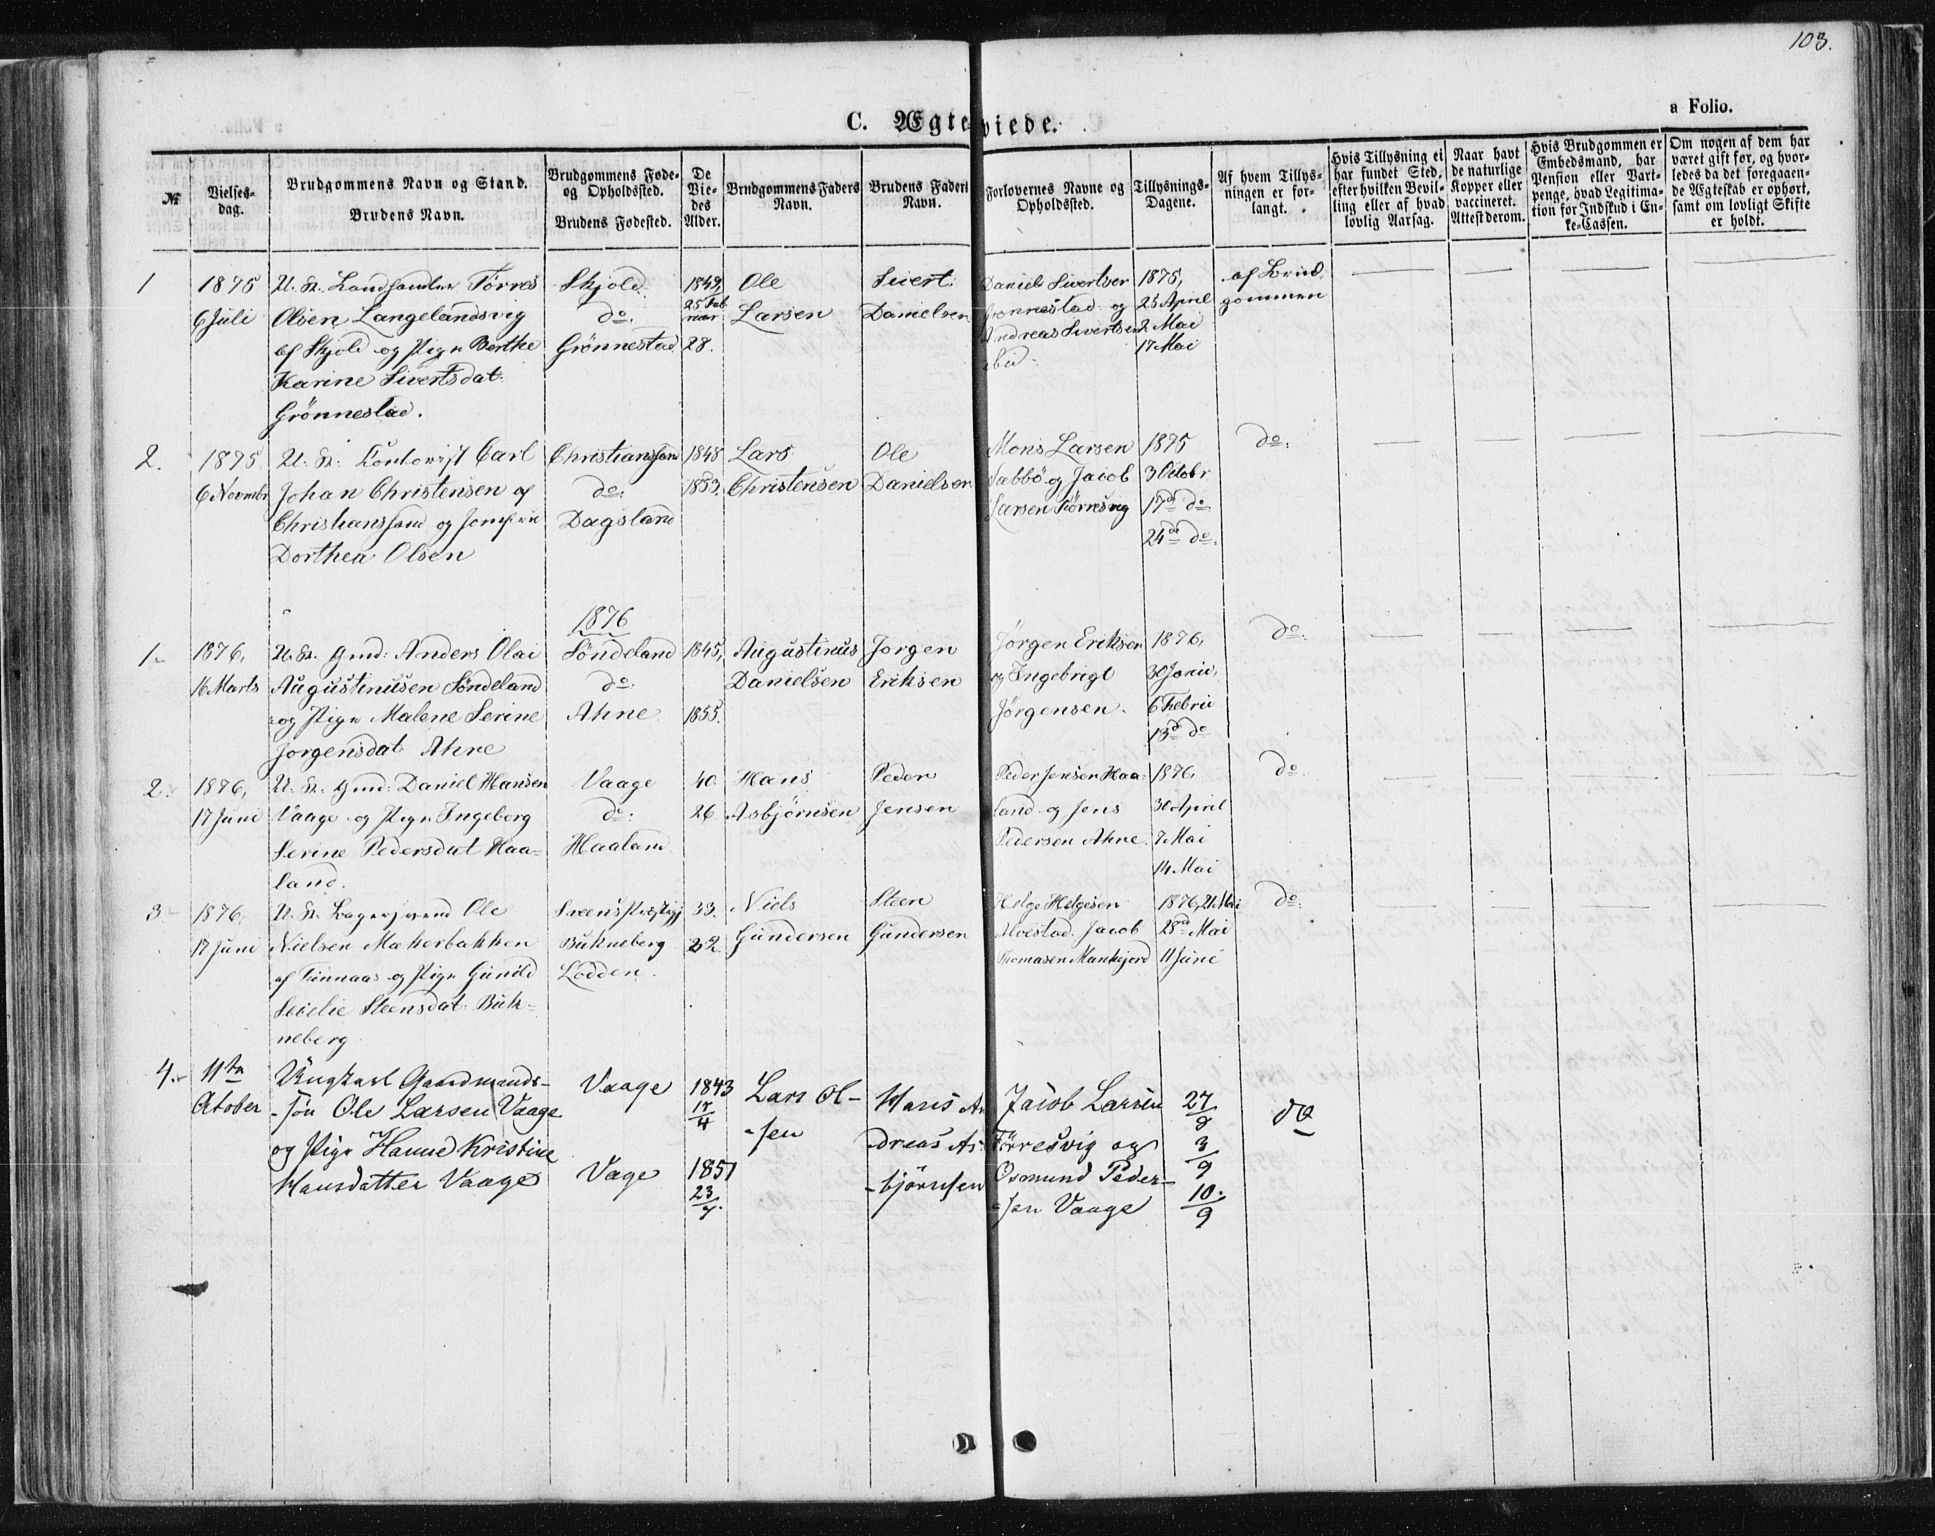 103.
a Folio.
C. Ægteviede.
№
Vielses-
dag.
Brudgommens Navn og Stand.
Brudens Navn.
Brudgommens Føde-
og Opholdssted.
Brudens Fødested.
De
Vie-
des
Alder.
Brudgommens Faders
Navn.
Brudens Faders
Navn.
Forlovernes Navne og
Opholdssted.
Tillysnings-
Dagene.
Af hvem Tillys-
ningen er for-
langt.
Hvis Tillysning ei
har fundet Sted,
efter hvilken Bevil-
ling eller af hvad
lovlig Aarsag.
Naar havt
de naturlige
Kopper eller
vaccineret.
Attest derom.
Hvis Brudgommen er
Embedsmand, har
Pension eller Vart-
penge, hvad Legitima-
tion for Indskud i En-
ke-Cassen.
Om nogen af dem har
været gift før, og hvor-
ledes da det foregaaen-
de Ægteskab er ophørt,
samt om lovligt Skifte
er holdt.
1
1875
6 Juli
U. K. Landhandler Tørres
Olsen Langelandsvig
af Skjold og Pige Berthe
Karine Sivertsdat.
Grönnestad.
Skjold
do.
Grönnestad
1849
25 Feb
ruar
28.
Ole
Larsen
Sivert
Danielsen
Daniel Sivertsen
Grønnestad og
Andreas Sivertsen
ibid.
1875,
25 April
2 Mai
17 Mai
af Brud
gommen
2.
1875
6 Novmbr
U. K. Kontorist Carl
Johan Christensen af
Christianssand og Jomfru
Dorthea Olsen
Christianssand
do.
Dagsland
1848
1853.
Lars
Christensen
Ole
Danielsen
Mons Larsen
Nabbö og Jacob
Larsen Förresvig
1875
3 Octobr
17de do.
24de do.
do.
1876
1.
1876,
16 Marts
U. K. Gmd. Anders Olai
Augustinusen Söndeland
og Pige Malene Serine
Jorgensdat. Ahne
Söndeland
do.
Ahne
1845,
1855.
Augustinus
Danielsen
Jorgen
Eriksen
Jörgen Eriksen
og Ingebrigt
Jörgensen.
1876,
30 Janu,
6 Febru
13de do
do.
2.
1876,
17 Juni
U. K. Gmd. Daniel Hansen
Vaage og Pige Ingeborg
Serine Pedersdat Haa-
land.
Vaage
do.
Haaland
40.
26
Hans
Asbjørnsen
Peder
Jensen
Peder Jensen Haa-
land og Jens
Pedersen Ahne
1876,
30 April
7 Mai
14 Mai
do.
3
1876,
17 Juni
U. K. Lagersvend Ole
Nielsen Makerbakken
af Finnaas og Pige Gunild
Steensdat. Buk-
neberg
Bukneberg
Lodden.
33.
22.
Niels
Gundersen
Steen
Gundersen
Helge Helgesen
Alvestad. Jacob
Thomasen Mankejord
1876, 21 Mai
28de Mai
11 Juni
do.
4.
11te
Oktober
Ungkarl Gaardmands-
-søn Ole Larsen Vaage
og Pige Hanne Kristine
Hansdatter Vaage
Vaage
Vage
1843
15/4
1851
23/7.
Lars Ol-
-sen
Hans An
-dreas As-
-bjørnsen
Jacob Larsen
Förresvig og
Osmund Peder-
-sen Vaage
27/8
3/9
10./9
do